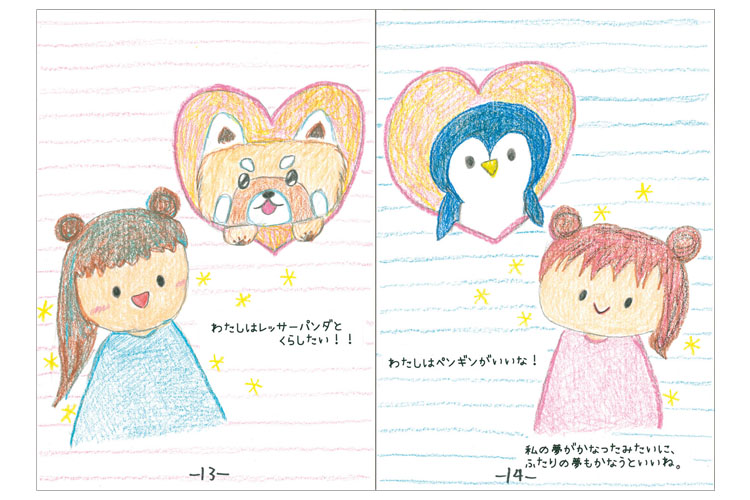 わたしはレッサーパンダと
くらしたい！！
-13-
わたしはペンギンがいいな！
私の夢がかなったみたいに、
ふたりの夢もかなうといいね。
-14-